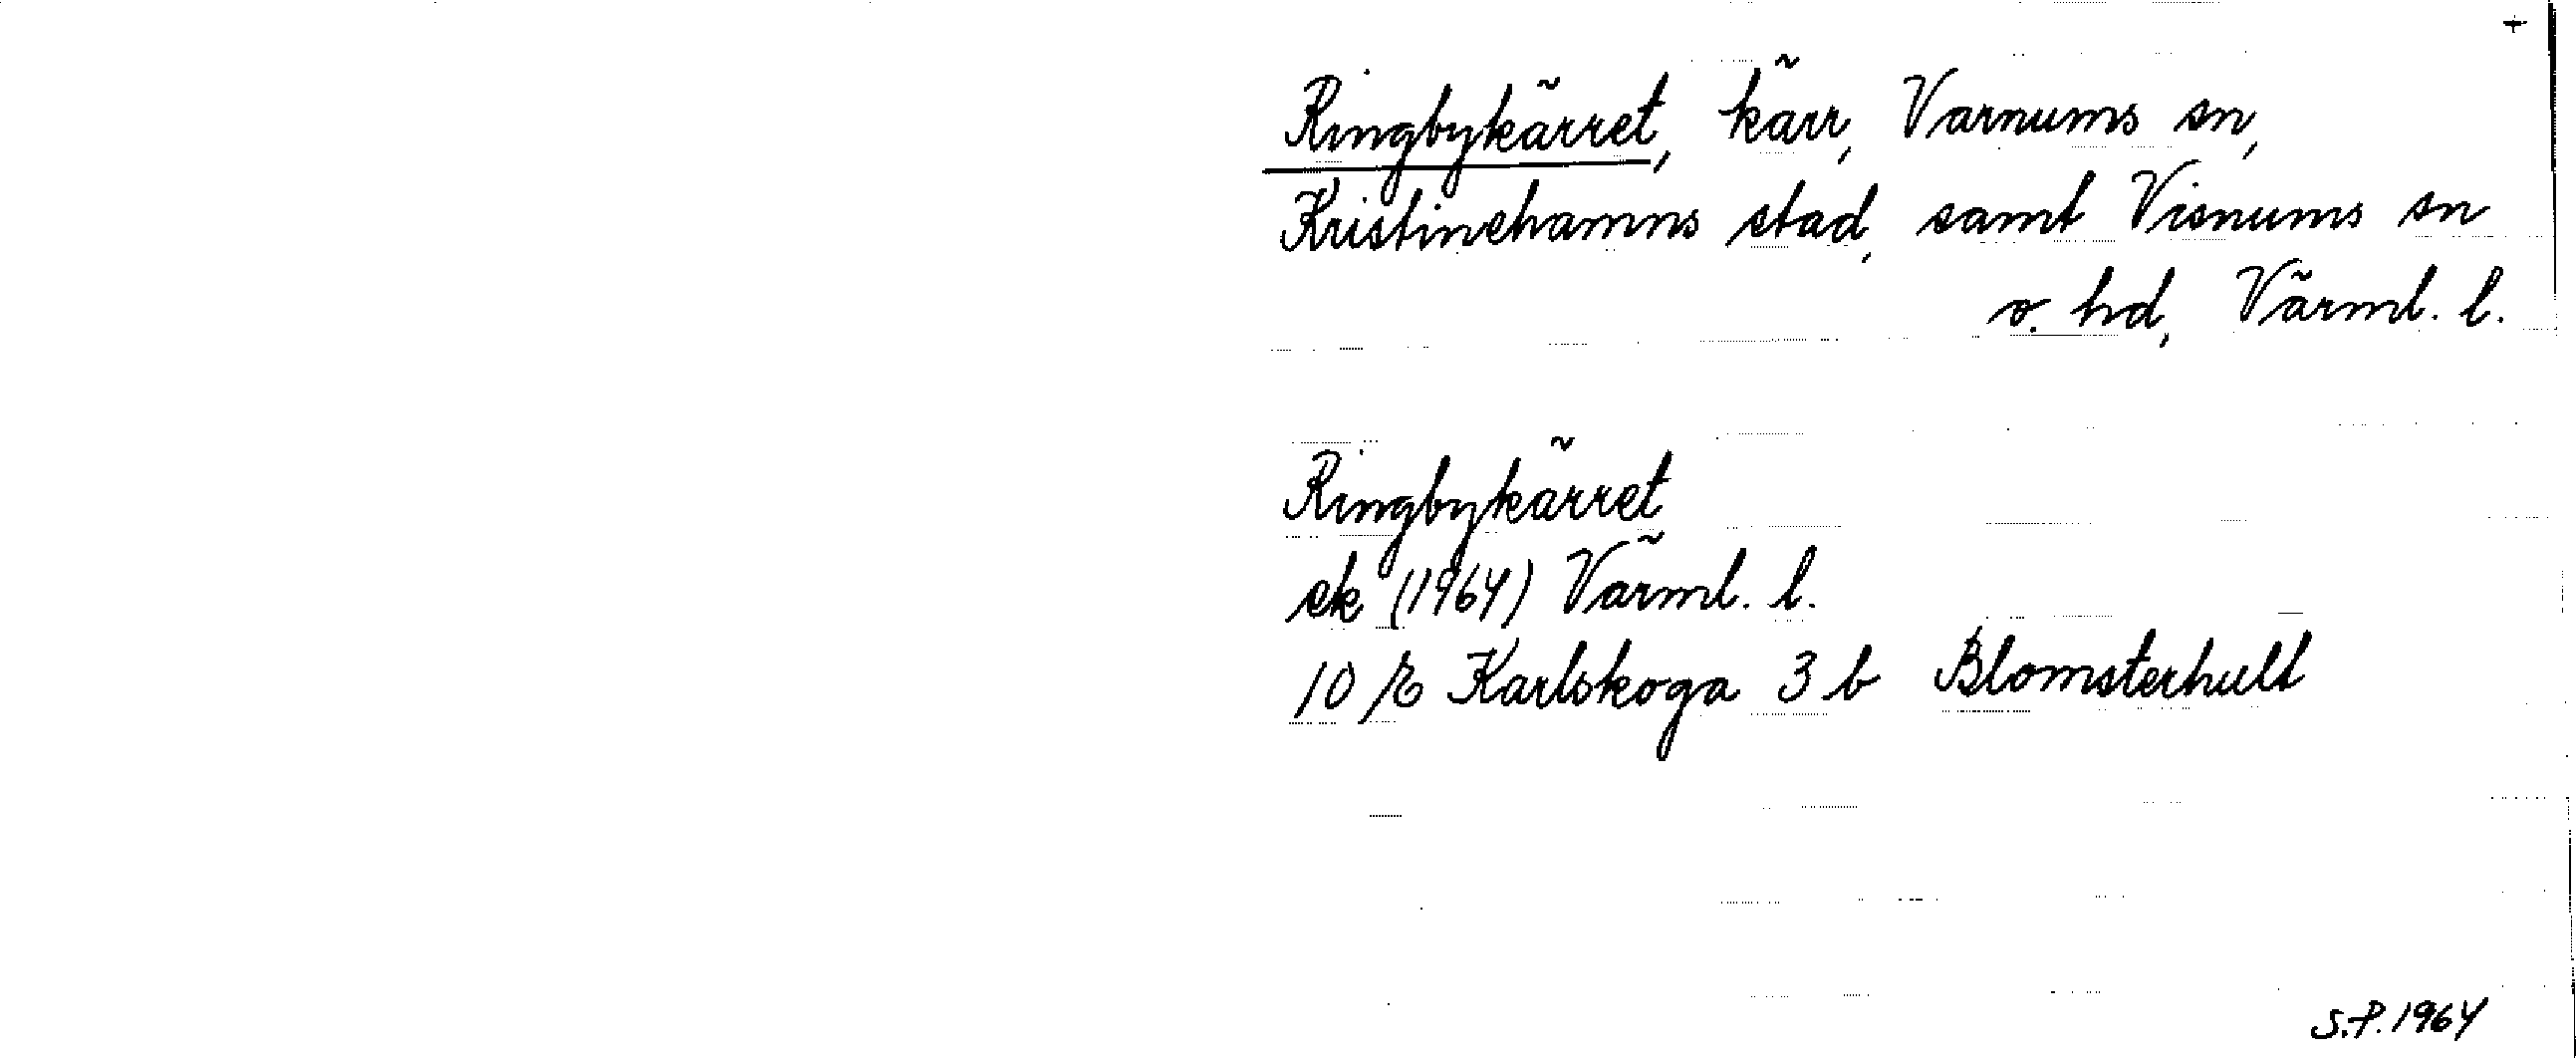 +
Ringbykärret, kärr, Varnums sn,
Kristinehamns stad, samt Visnums sn
o. hd, Värml. l.
Ringbykärret
ek (1964) Värml. l.
10 E Karlskoga 3 b Blomsterhult
S.P. 1964